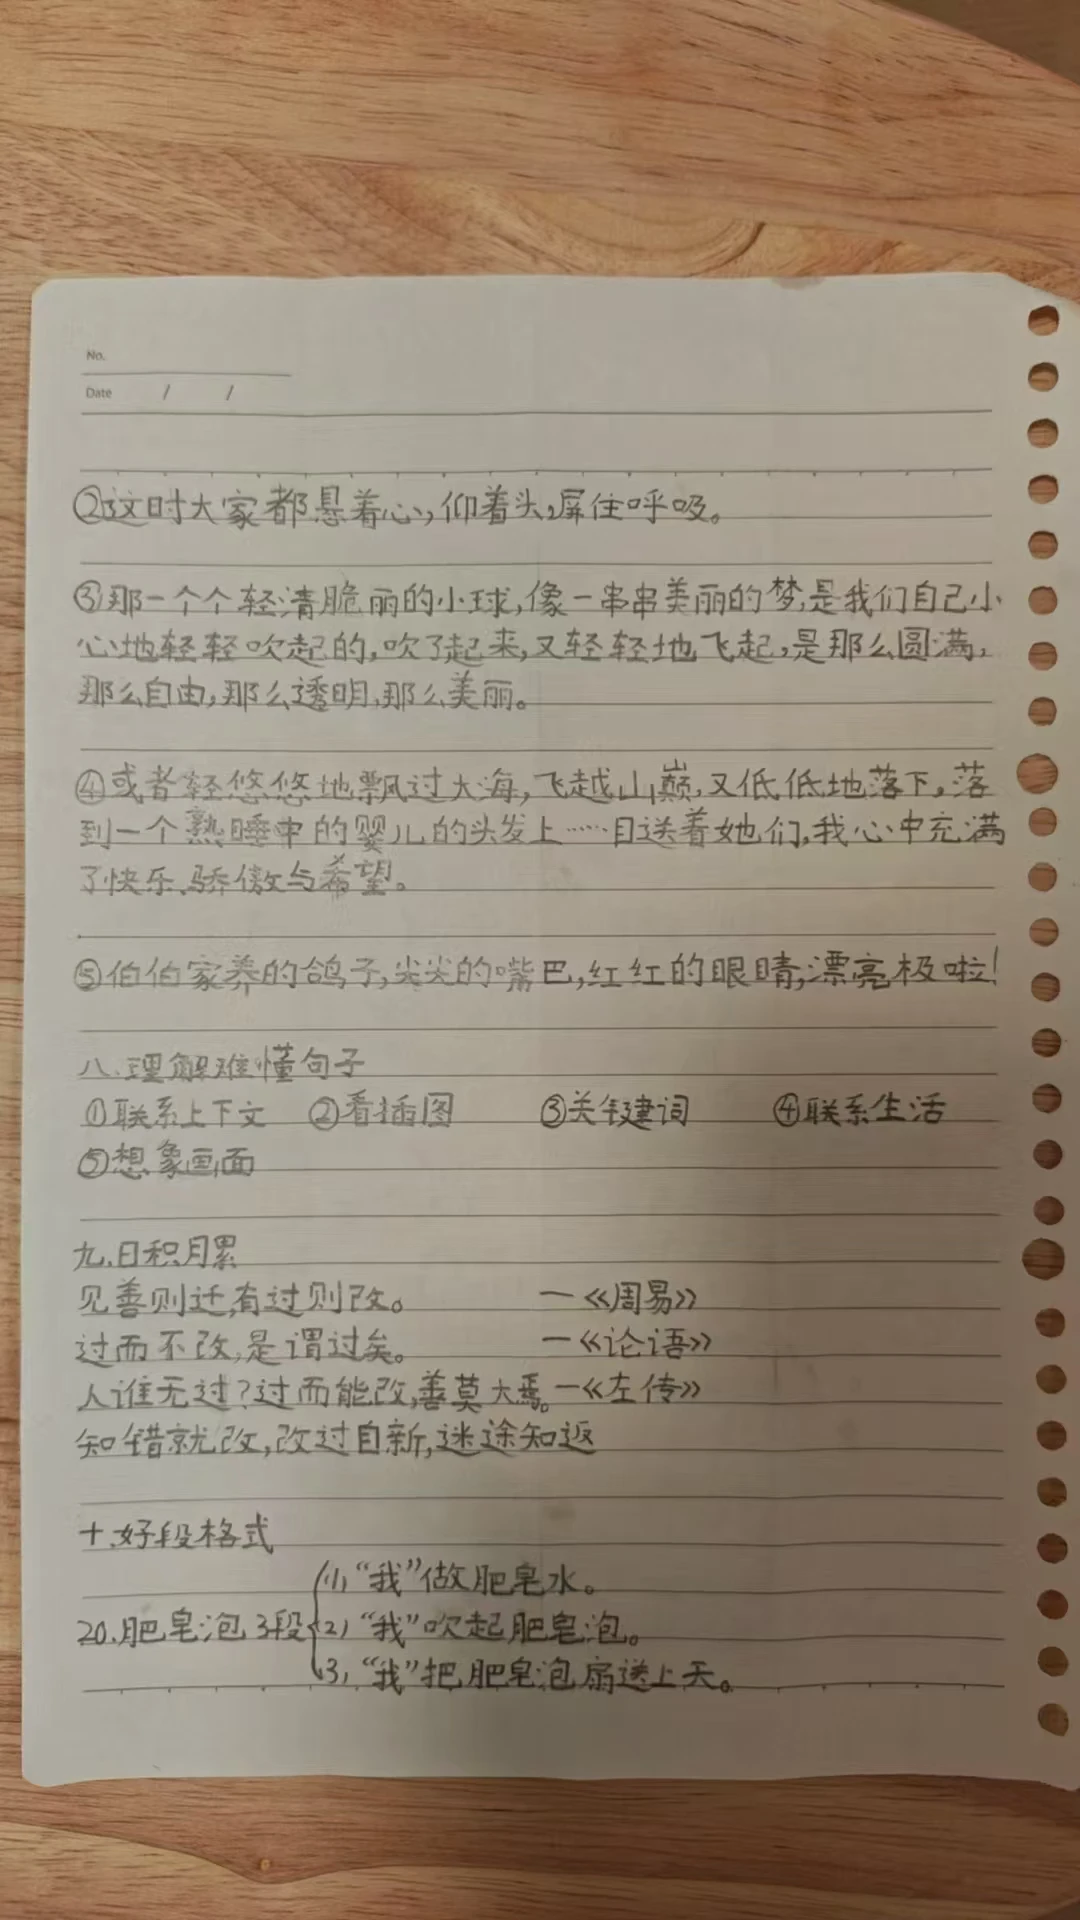 No.
Date / /
②这时大家都悬着心,仰着头,屏住呼吸。
③那一个个轻清脆丽的小球,像一串串美丽的梦,是我们自己小
心地轻轻吹起的,吹了起来,又轻轻地飞起,是那么圆满,
那么自由,那么透明,那么美丽。
④或者轻悠悠地飘过大海,飞越山巅,又低低地落下,落
到一个熟睡中的婴儿的头发上……目送着她们,我心中充满
了快乐、骄傲与希望。
⑤伯伯家养的鸽子,尖尖的嘴巴,红红的眼睛,漂亮极啦!
八.理解难懂句子
①联系上下文 ②看插图 ③关键词 ④联系生活
⑤想象画面
九.日积月累
见善则迁,有过则改。 —《周易》
过而不改,是谓过矣。 —《论语》
人谁无过?过而能改,善莫大焉。—《左传》
知错就改,改过自新,迷途知返
十.好段格式
(1)“我”做肥皂水。
20.肥皂泡 3段 (2)“我”吹起肥皂泡。
(3)“我”把肥皂泡扇送上天。